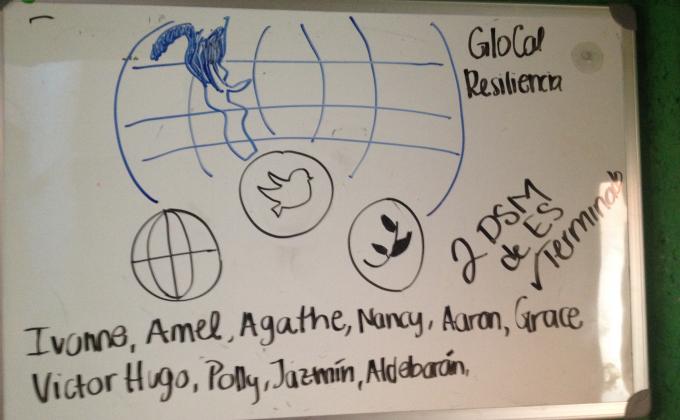 GloCal
Resiliencia
2 DSM
de ES
√Terminas
Ivonne, Amel, Agathe, Nancy, Aaron, Grace
Victor Hugo, Polly, Jazmín, Aldebarán,